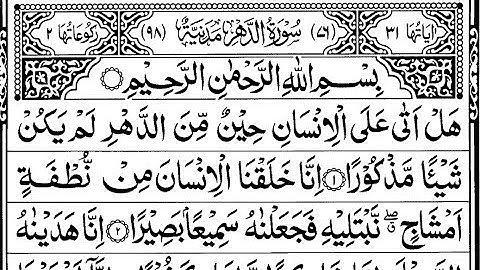 اٰيَاتُهَا ٣١ (٧٦) سُوْرَةُ الدَّهْرِ مَدَنِيَّةٌ (٩٨) رُكُوْعَاتُهَا ٢
بِسْمِ اللّٰهِ الرَّحْمٰنِ الرَّحِيْمِ
هَلْ اَتٰى عَلَى الْاِنْسَانِ حِيْنٌ مِّنَ الدَّهْرِ لَمْ يَكُنْ
شَيْـًٔا مَّذْكُوْرًا ۝١ اِنَّا خَلَقْنَا الْاِنْسَانَ مِنْ نُّطْفَةٍ
اَمْشَاجٍ ۖۗ نَّبْتَلِيْهِ فَجَعَلْنٰهُ سَمِيْعًۢا بَصِيْرًا ۝٢ اِنَّا هَدَيْنٰهُ